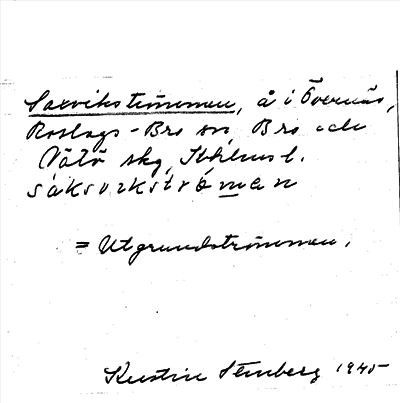 Saxvikströmmen, å i Övernäs,
Roslags-Bro sn, Bro och
Vätö skg, Sthlms l.
sáksvikströ̀man
= Utgrundströmmen.
Kerstin Stenberg 1945